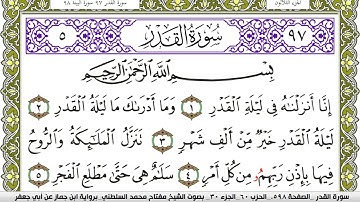 الجزء الثلاثون
سورة القدر ٩٧ سورة البينة ٩٨
٩٧ سُورَةُ القَدْرِ ٥
بِسْمِ اللَّهِ الرَّحْمَٰنِ الرَّحِيمِ
إِنَّا أَنزَلْنَاهُ فِي لَيْلَةِ الْقَدْرِ ١ وَمَا أَدْرَىٰكَ مَا لَيْلَةُ الْقَدْرِ ٢
لَيْلَةُ الْقَدْرِ خَيْرٌ مِّنْ أَلْفِ شَهْرٍ ٣ تَنَزَّلُ الْمَلَٰٓئِكَةُ وَالرُّوحُ
فِيهَا بِإِذْنِ رَبِّهِمُ مِن كُلِّ أَمْرٍ ٤ سَلَٰمٌ هِيَ حَتَّىٰ مَطْلَعِ الْفَجْرِ ٥
سورة القدر . الصفحة ٥٩٨ . الحزب ٦٠ الجزء ٣٠ . بصوت الشيخ مفتاح محمد السلطني برواية ابن جماز عن أبي جعفر